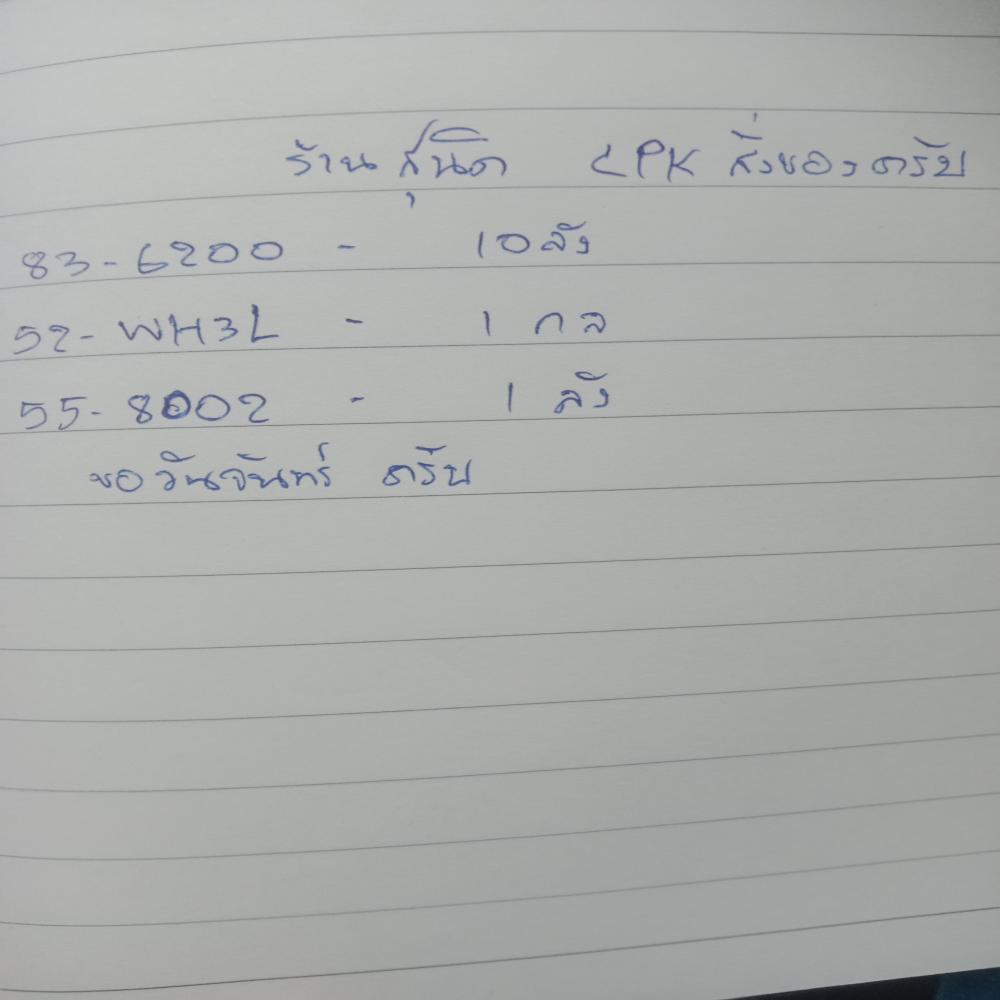 ร้าน สุนิต CPK สั่งของครับ
83-6200 - 10 ลัง
52-WH3L - 1 กล
55-8002 - 1 ลัง
ขอวันจันทร์ ครับ